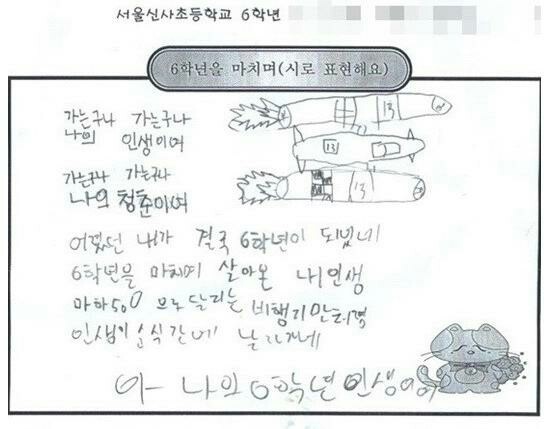 서울신사초등학교 6학년
6학년을 마치며(시로 표현해요)
가는구나 가는구나
나의 인생이여
가는구나 가는구나
나의 청춘이여
13
13
13
어렸던 내가 결국 6학년이 되었네
6학년을 마치며 살아온 내 인생
마하 500 으로 달리는 비행기만처럼
인생이 순식간에 날라가네
아- 나의 6학년 인생이여